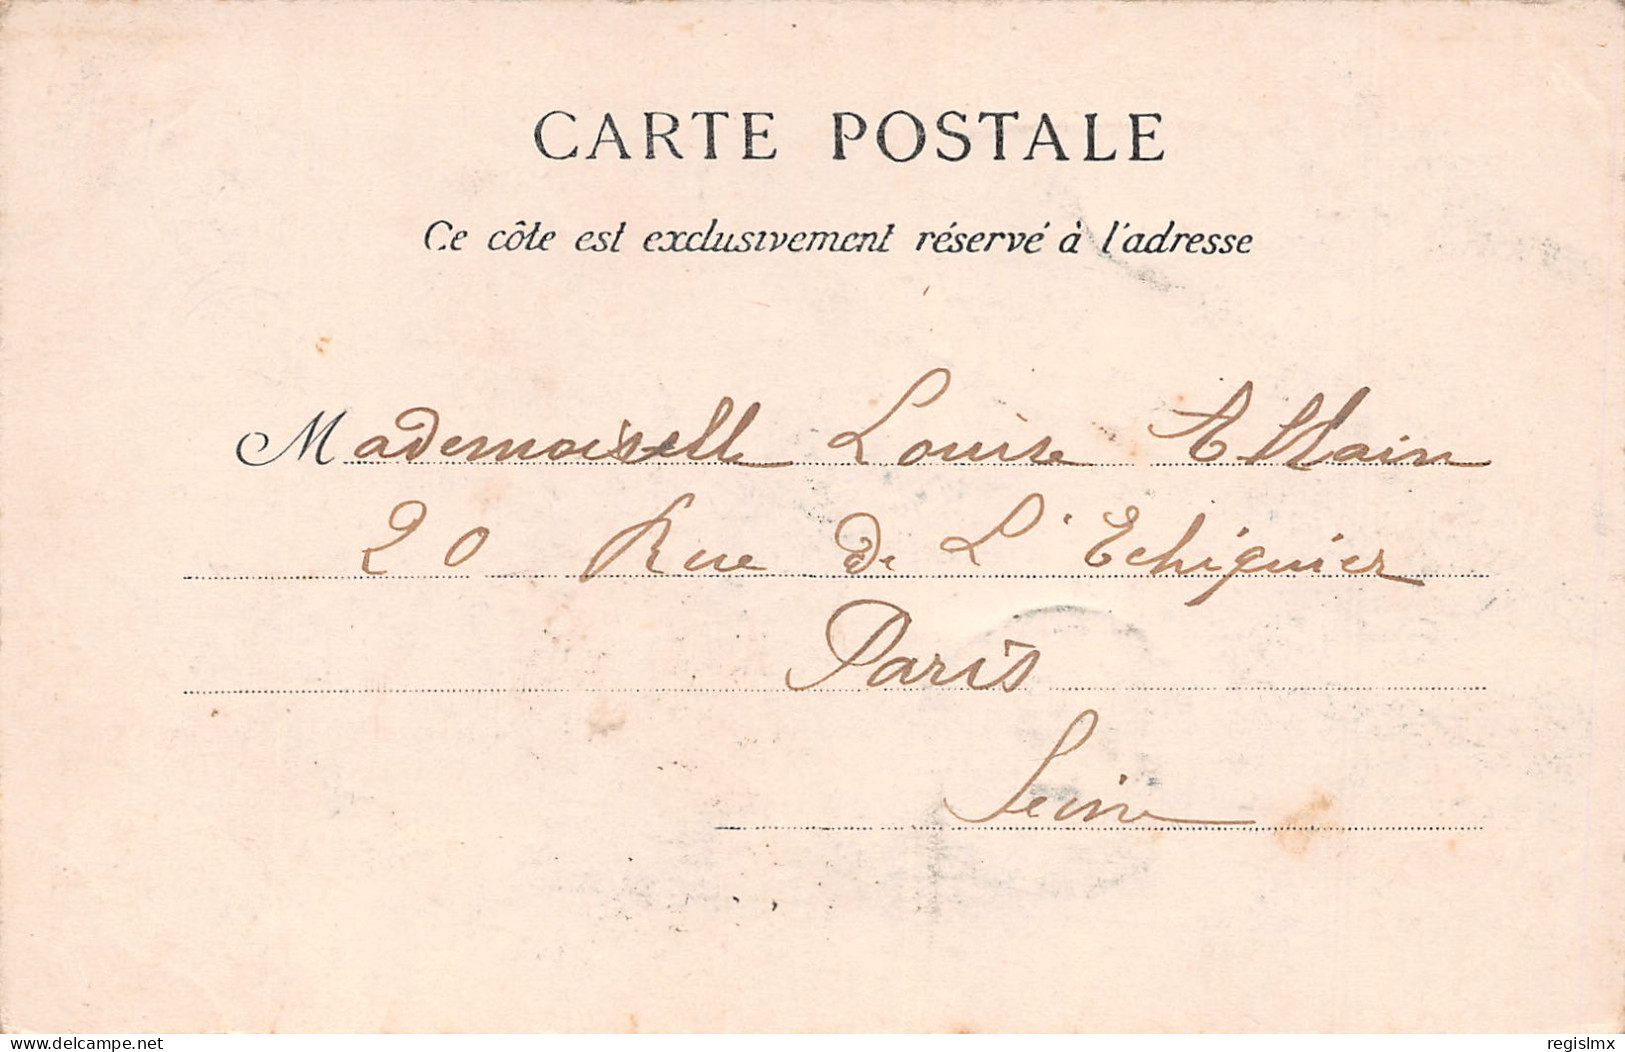 CARTE POSTALE
Ce côte est exclusivement réservé à l'adresse
Mademoiselle Louise Allain
20 Rue de L'Echiquier
Paris
Seine
delcampe.net
regislmx